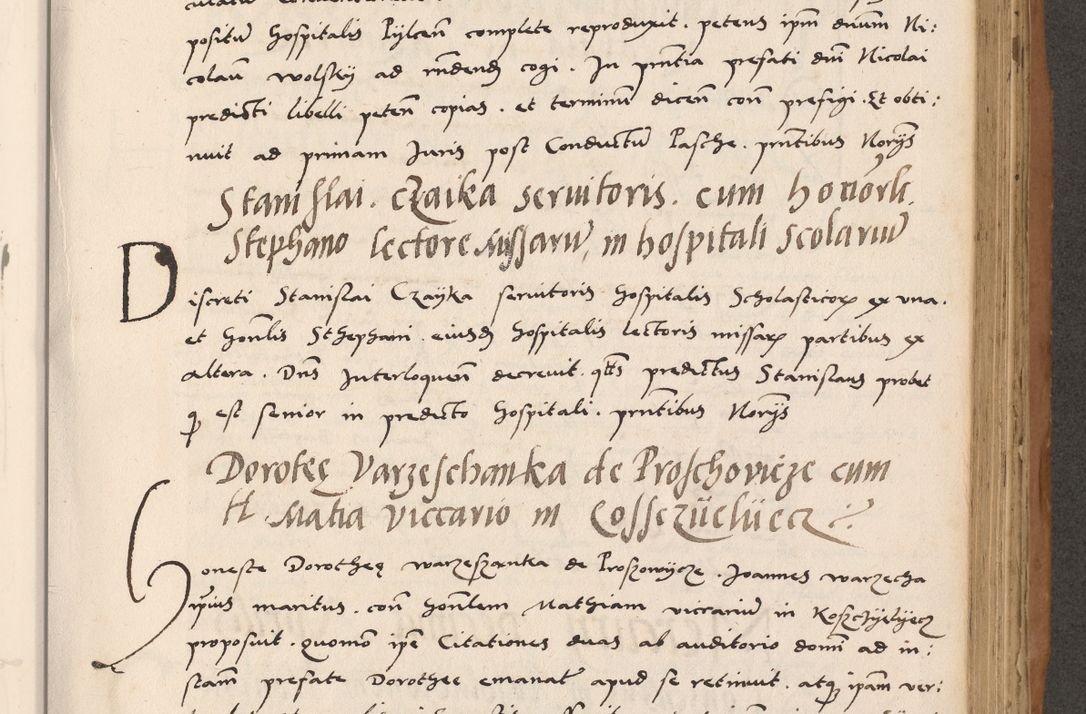 positum hospitalis Pijlcen complete reproduxit. petens ipm dnum Ni:
colaum wolskij ad rndendum cogi. In pntia prefati dni Nicolai
predicti libelli peten copias. et terminum dicen con prefigi. Et obti:
nuit ad primam Juris post Conductum Pasche. pntibus Norijs
Stanislai. Czaika servitoris. cum honorli.
Stephano lectore Missarum, in hospitali Scolarium
Discreti Stanislai Czayka servitoris hospitalis Scholasticorum ex una.
et honlis Sthephani. eiusdem hospitalis lectoris missarum partibus ex
altera. Dns Interloquen decrevit. qtus predictus Stanislaus probet
q est senior in predicto hospitali. pntibus Norijs
Dorotheę Varzeschanka de Proschovicze cum
H. Matia Viccario in Cossczüelüecz
Honeste Dorotheę warzeszanka de Proszowijcze. Joannes warzecha
ipius maritus. con honlem Mathiam viccarium in Koszczijelijecz
proposuit. quomo ipe Citationes duas ab auditorio domi ad in:
stam prefate Dorothee emanat apud se retinuit. atq ipam ver: